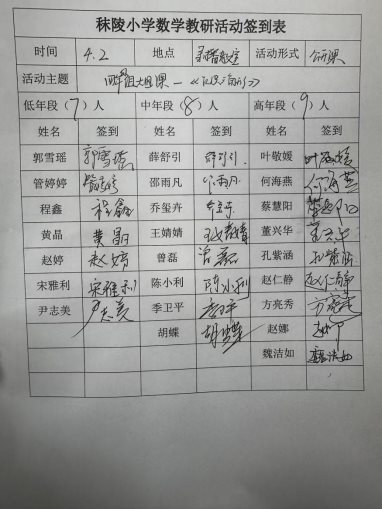 秣陵小学数学教研活动签到表
时间 4.2 地点 录播教室 活动形式 公开课
活动主题
低年段(7)人 中年段(8)人 高年段(9)人
姓名 签到 姓名 签到 姓名 签到
郭雪瑶 郭雪瑶 薛舒引 薛舒引 叶敬媛 叶敬媛
管婷婷 管婷婷 邵雨凡 邵雨凡 何海燕 何海燕
程鑫 程鑫 乔玺卉 蔡慧阳
黄晶 黄晶 王婧婧 王婧婧 董兴华 董兴华
赵婷 赵婷 曾磊 曾磊 孔紫涵 孔紫涵
宋雅利 宋雅利 陈小利 陈小利 赵仁静 赵仁静
尹志美 尹志美 季卫平 季卫平 方亮秀 方亮秀
胡蝶 胡蝶 赵娜 赵娜
魏洁如 魏洁如